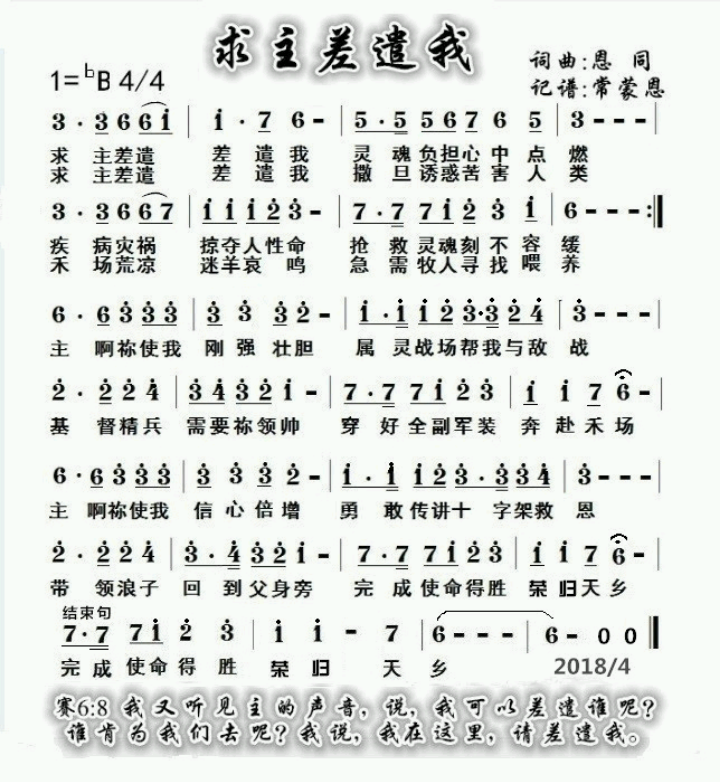 求主差遣我
词曲:恩 同
1=♭B 4/4
记谱:常蒙恩
3 · 3 6 6 i | i · 7 6 - | 5 · 5 5 6 7 6 5 | 3 - - - |
求 主差遣 差 遣 我 灵 魂负担心中点 燃
求 主差遣 差 遣 我 撒 旦诱惑苦害人 类
3 · 3 6 6 7 | i i i 2 3 - | 7 · 7 7 i 2 3 i | 6 - - - :|
疾 病灾祸 掠夺人性命 抢 救灵魂刻不容 缓
禾 场荒凉 迷羊哀 鸣 急 需牧人寻找喂 养
6 · 6 3 3 3 | 3 3 3 2 - | i · i i 2 3 · 3 2 4 | 3 - - - |
主 啊祢使我 刚 强 壮胆 属 灵战场帮我与敌 战
2 · 2 2 4 | 3 4 3 2 i - | 7 · 7 7 i 2 3 | i i 7 6 - |
基 督精兵 需要祢领帅 穿 好全副军装 奔 赴禾场
6 · 6 3 3 3 | 3 3 3 2 - | i · i i 2 3 · 3 3 4 | 3 - - - |
主 啊祢使我 信 心 倍 增 勇 敢传讲十 字架救 恩
2 · 2 2 4 | 3 · 4 3 2 i - | 7 · 7 7 i 2 3 | i i 7 6 - |
带 领浪子 回 到父身旁 完 成使命得胜 荣归天乡
结束句
7 · 7 7 i 2 3 | i i - 7 | 6 - - - | 6 - 0 0 ‖
完 成 使命得 胜 荣 归 天 乡 2018/4
赛6:8 我又听见主的声音，说，我可以差遣谁呢？
谁肯为我们去呢？我说，我在这里，请差遣我。